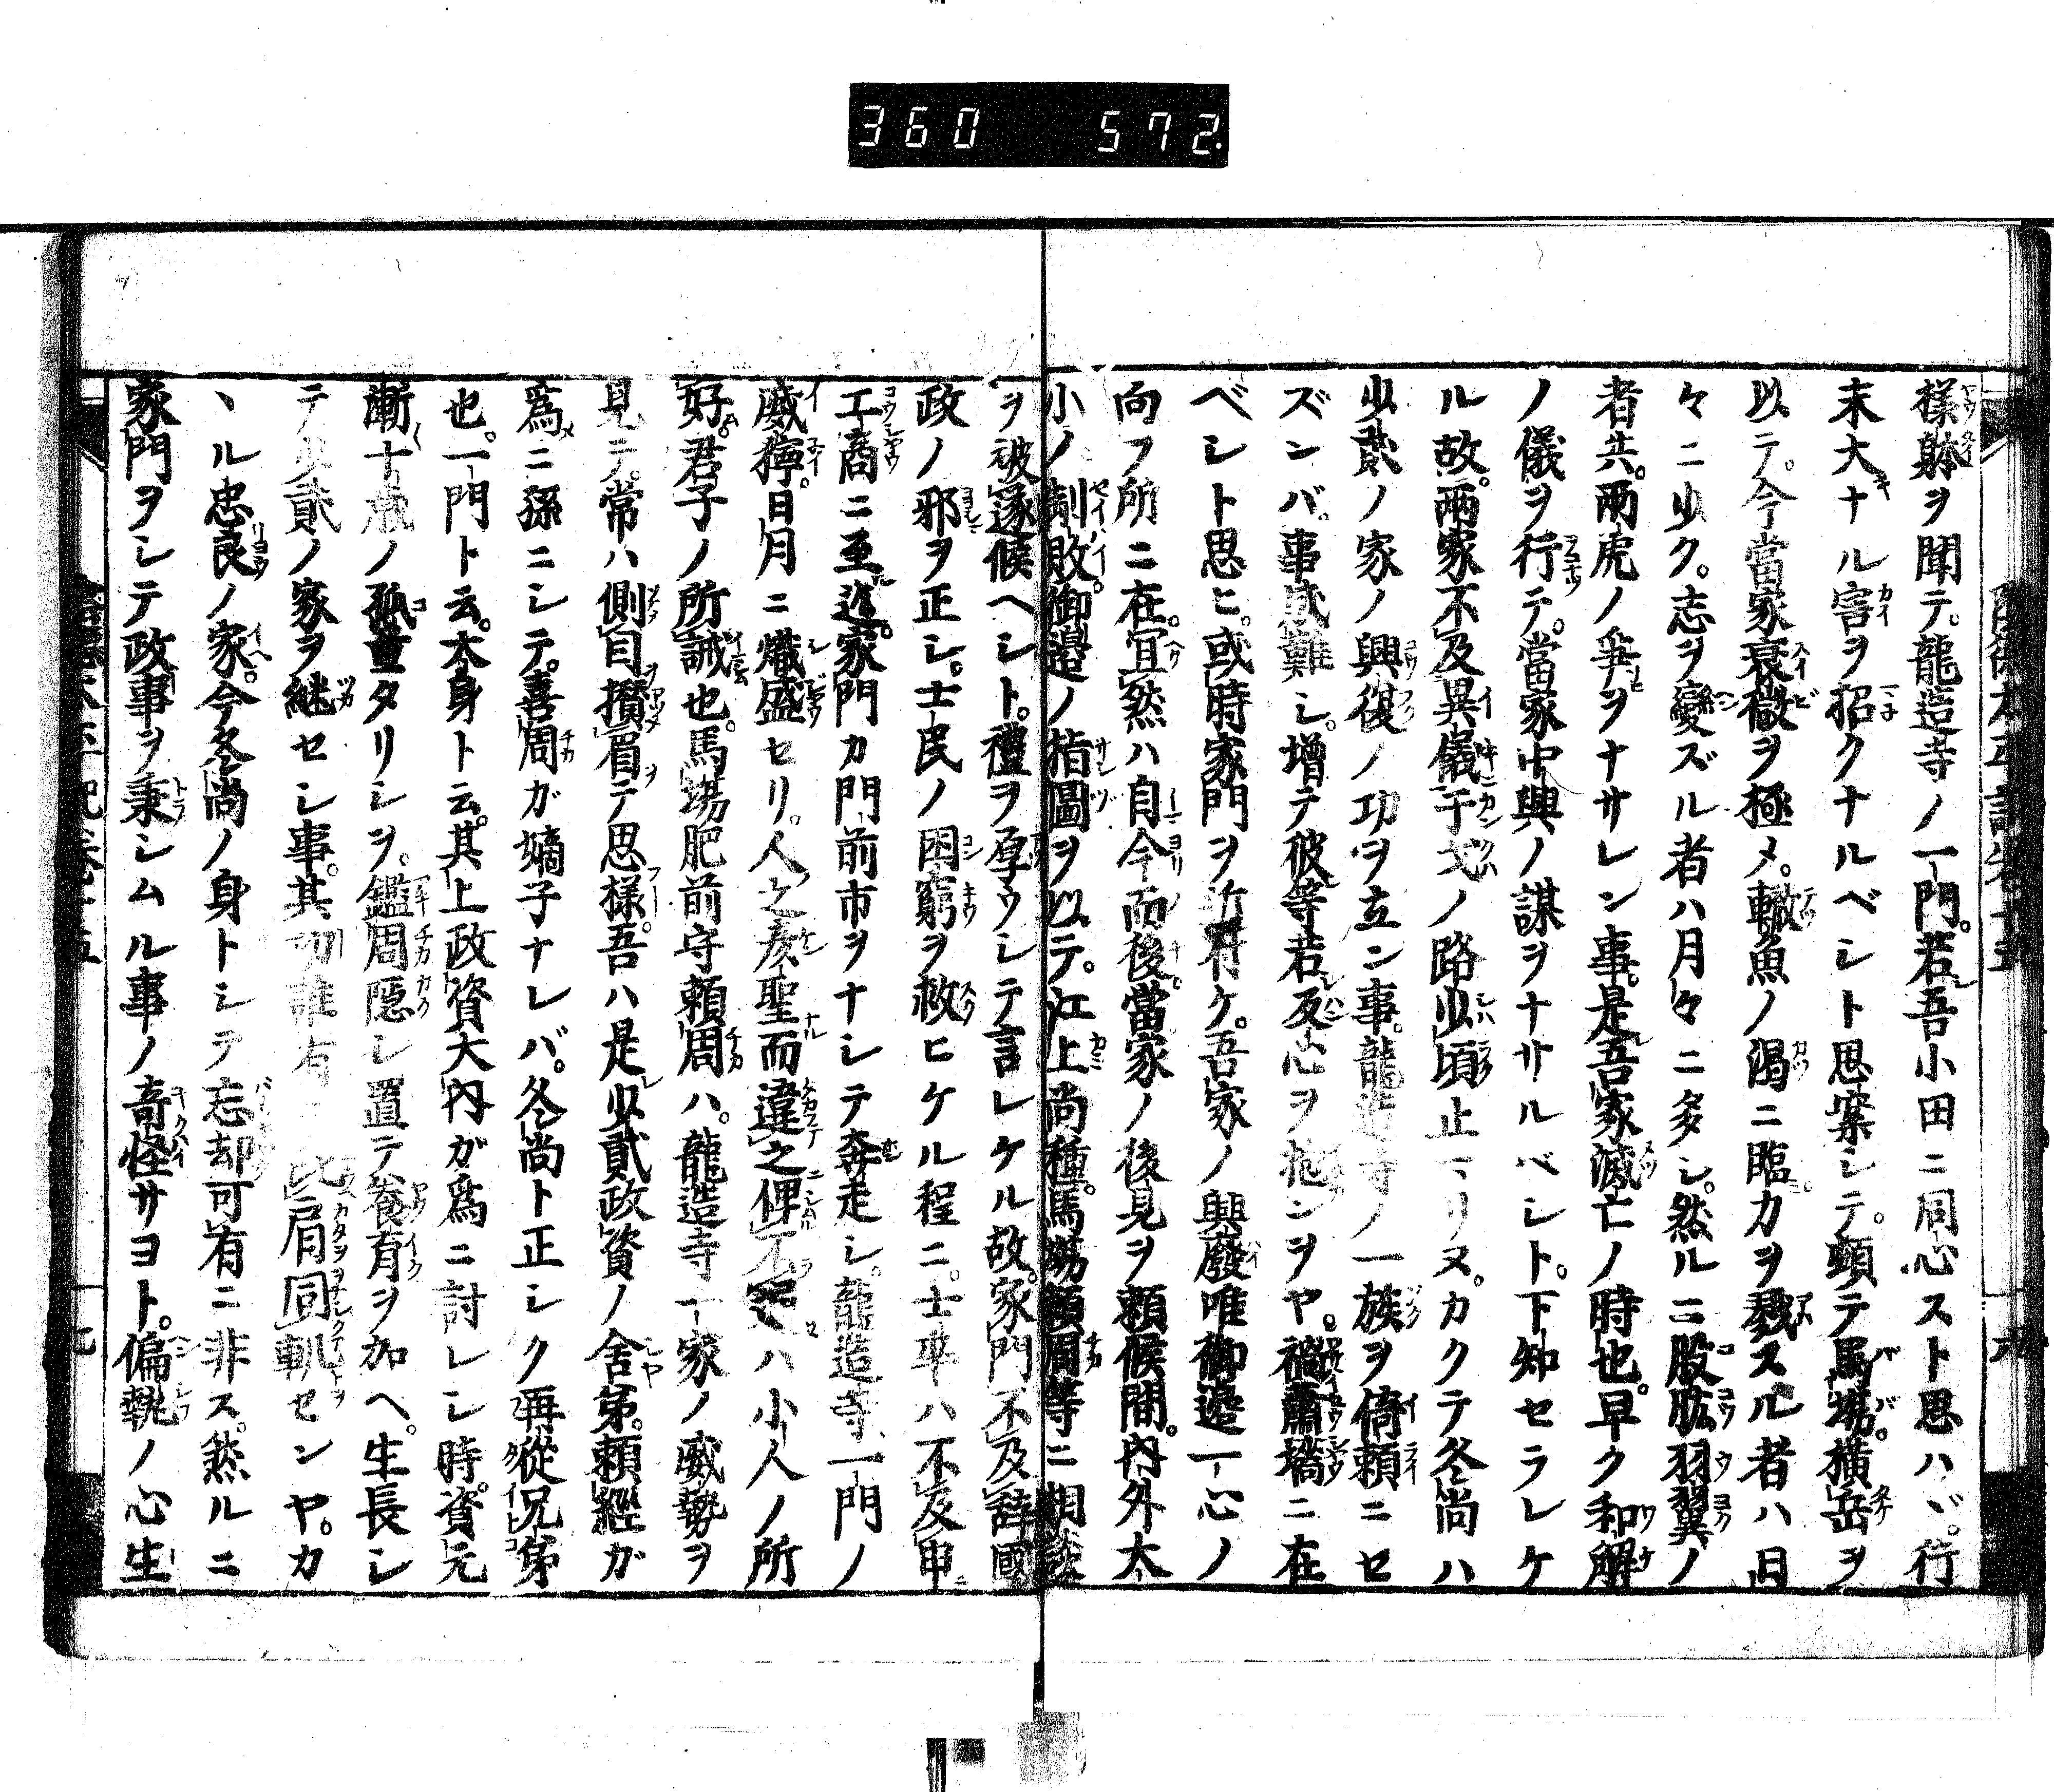 360 572.
様躰ヲ聞テ。龍造寺ノ一門。若吾小田ニ同心スト思ハヾ。行
末大ナル害ヲ招クナルベシト思案シテ。頸テ馬場。横岳ヲ
以テ。今當家衰微ヲ極メ。轍魚ノ渇ニ臨。カヲ戮スル者ハ日
々ニ少ク。志ヲ變ズル者ハ月々ニ多シ。然ルニ股肱羽翼ノ
者共。兩虎ノ爭ヲナサレン事。是吾家滅亡ノ時也。早ク和解
ノ儀ヲ行テ。當家中興ノ謀ヲナサルベシト。下知セラレケ
ル故。兩家不及異儀。干戈ノ路少頃止マリヌ。カクテ冬尚ハ
少貳ノ家ノ興復ノ功ヲ立ン事。龍造寺ノ一族ヲ倚頼ニセ
ズンバ。事成難シ。増テ彼等若反心ヲ抱ンヲヤ。禍蕭墻ニ在
ベシト思ヒ。或時家門ヲ近付ケ。吾家ノ興廢唯御邉一心ノ
向フ所ニ在。宜然ハ自今而後。當家ノ後見ヲ頼候間。内外太
小ノ制敗。御邉ノ指圖ヲ以テ。江上尚種。馬場頼周等ニ相談
ヲ被遂候ヘシト。禮ヲ厚ウシテ言レケル故。家門不及辞國
政ノ邪ヲ正シ。士民ノ困窮ヲ救ヒケル程ニ。士卒ハ不及申
工商ニ至迄。家門カ門前市ヲナシテ奔走シ。龍造寺一門ノ
威獰。日月ニ熾盛セリ。人之彦聖而違之俾不通ハ小人ノ所
好。君子ノ所誡也。馬場肥前守頼周ハ。龍造寺一家ノ威勢ヲ
見テ。常ハ側目攅眉テ思様。吾ハ是少貳政資ノ舎弟。頼經ガ
爲ニ孫ニシテ。喜周ガ嫡子ナレバ。冬尚ト正シク再從兄弟
也。一門ト云。太身ト云。其上政資大内ガ爲ニ討レシ時。資元
漸十歳ノ孤童タリシヲ。鑑周隠レ置テ養育ヲ加ヘ。生長シ
テ少貳ノ家ヲ継セシ事。其功誰有テ比肩同軌センヤ。カ
ヽル忠良ノ家。今冬尚ノ身トシテ忘却可有ニ非ス。然ルニ
家門ヲシテ政事ヲ秉シムル事ノ奇怪サヨト。偏執ノ心生